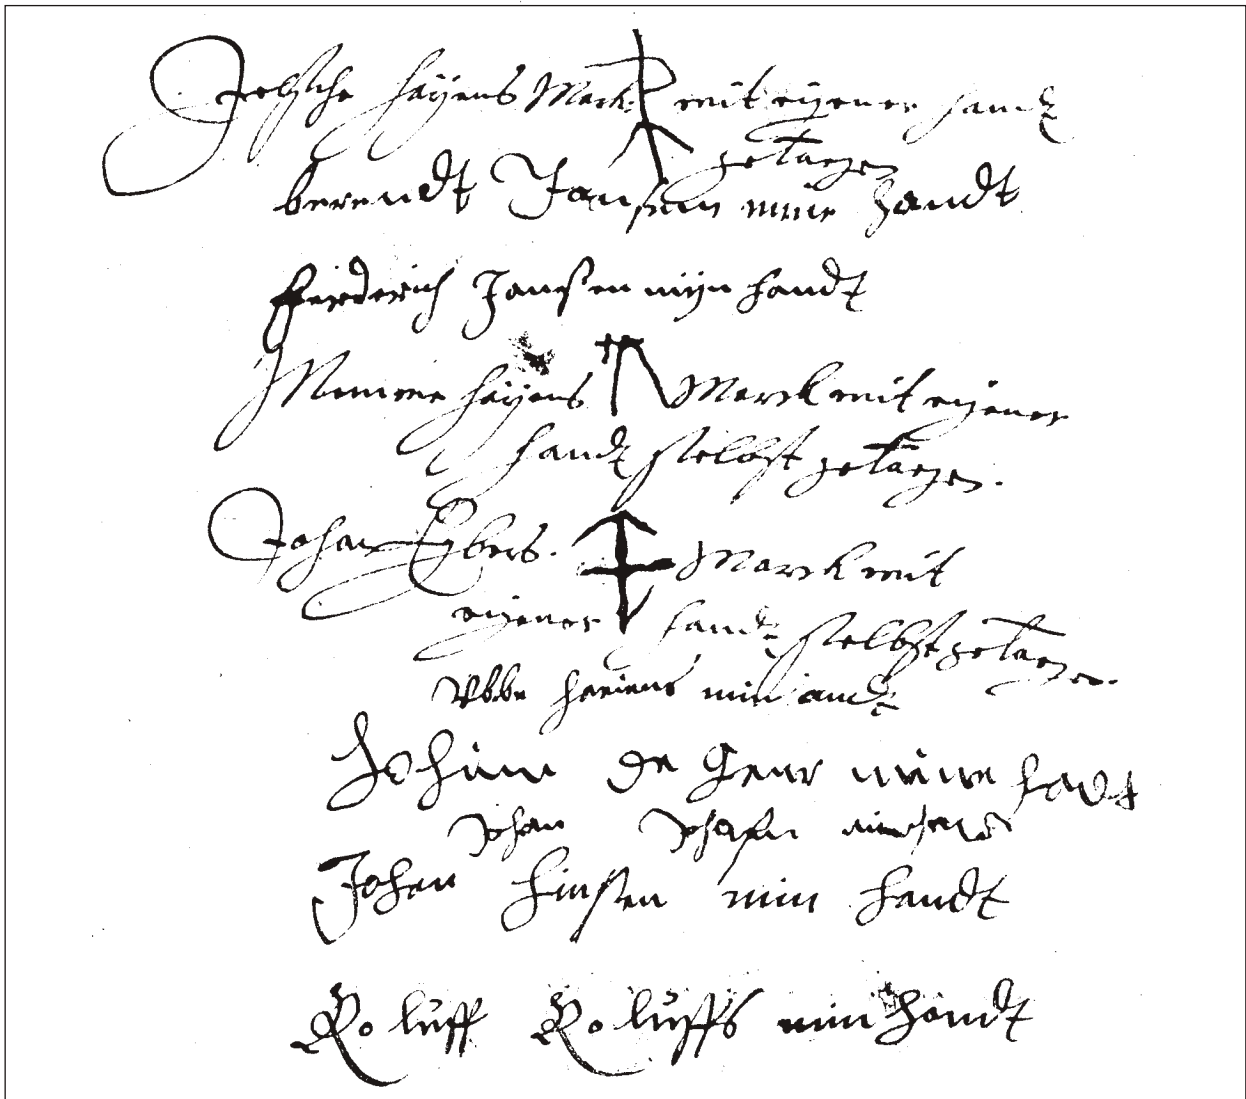 Jelsche Hayens Marck mit eigener Handt
getaegen
berendt Jansen mine Handt
Frerderich Janssen mijn Handt
Memme Hayens Marck mit eigener
Handt selbst getaegen.
Johan Eybers. Marck mit
eigener Handt selbst getaegen.
Ubbe Hareiens min andt
de Geur mine Hadt
Johan
Johan Hinssen min Handt
Roluff Roluffs min Handt